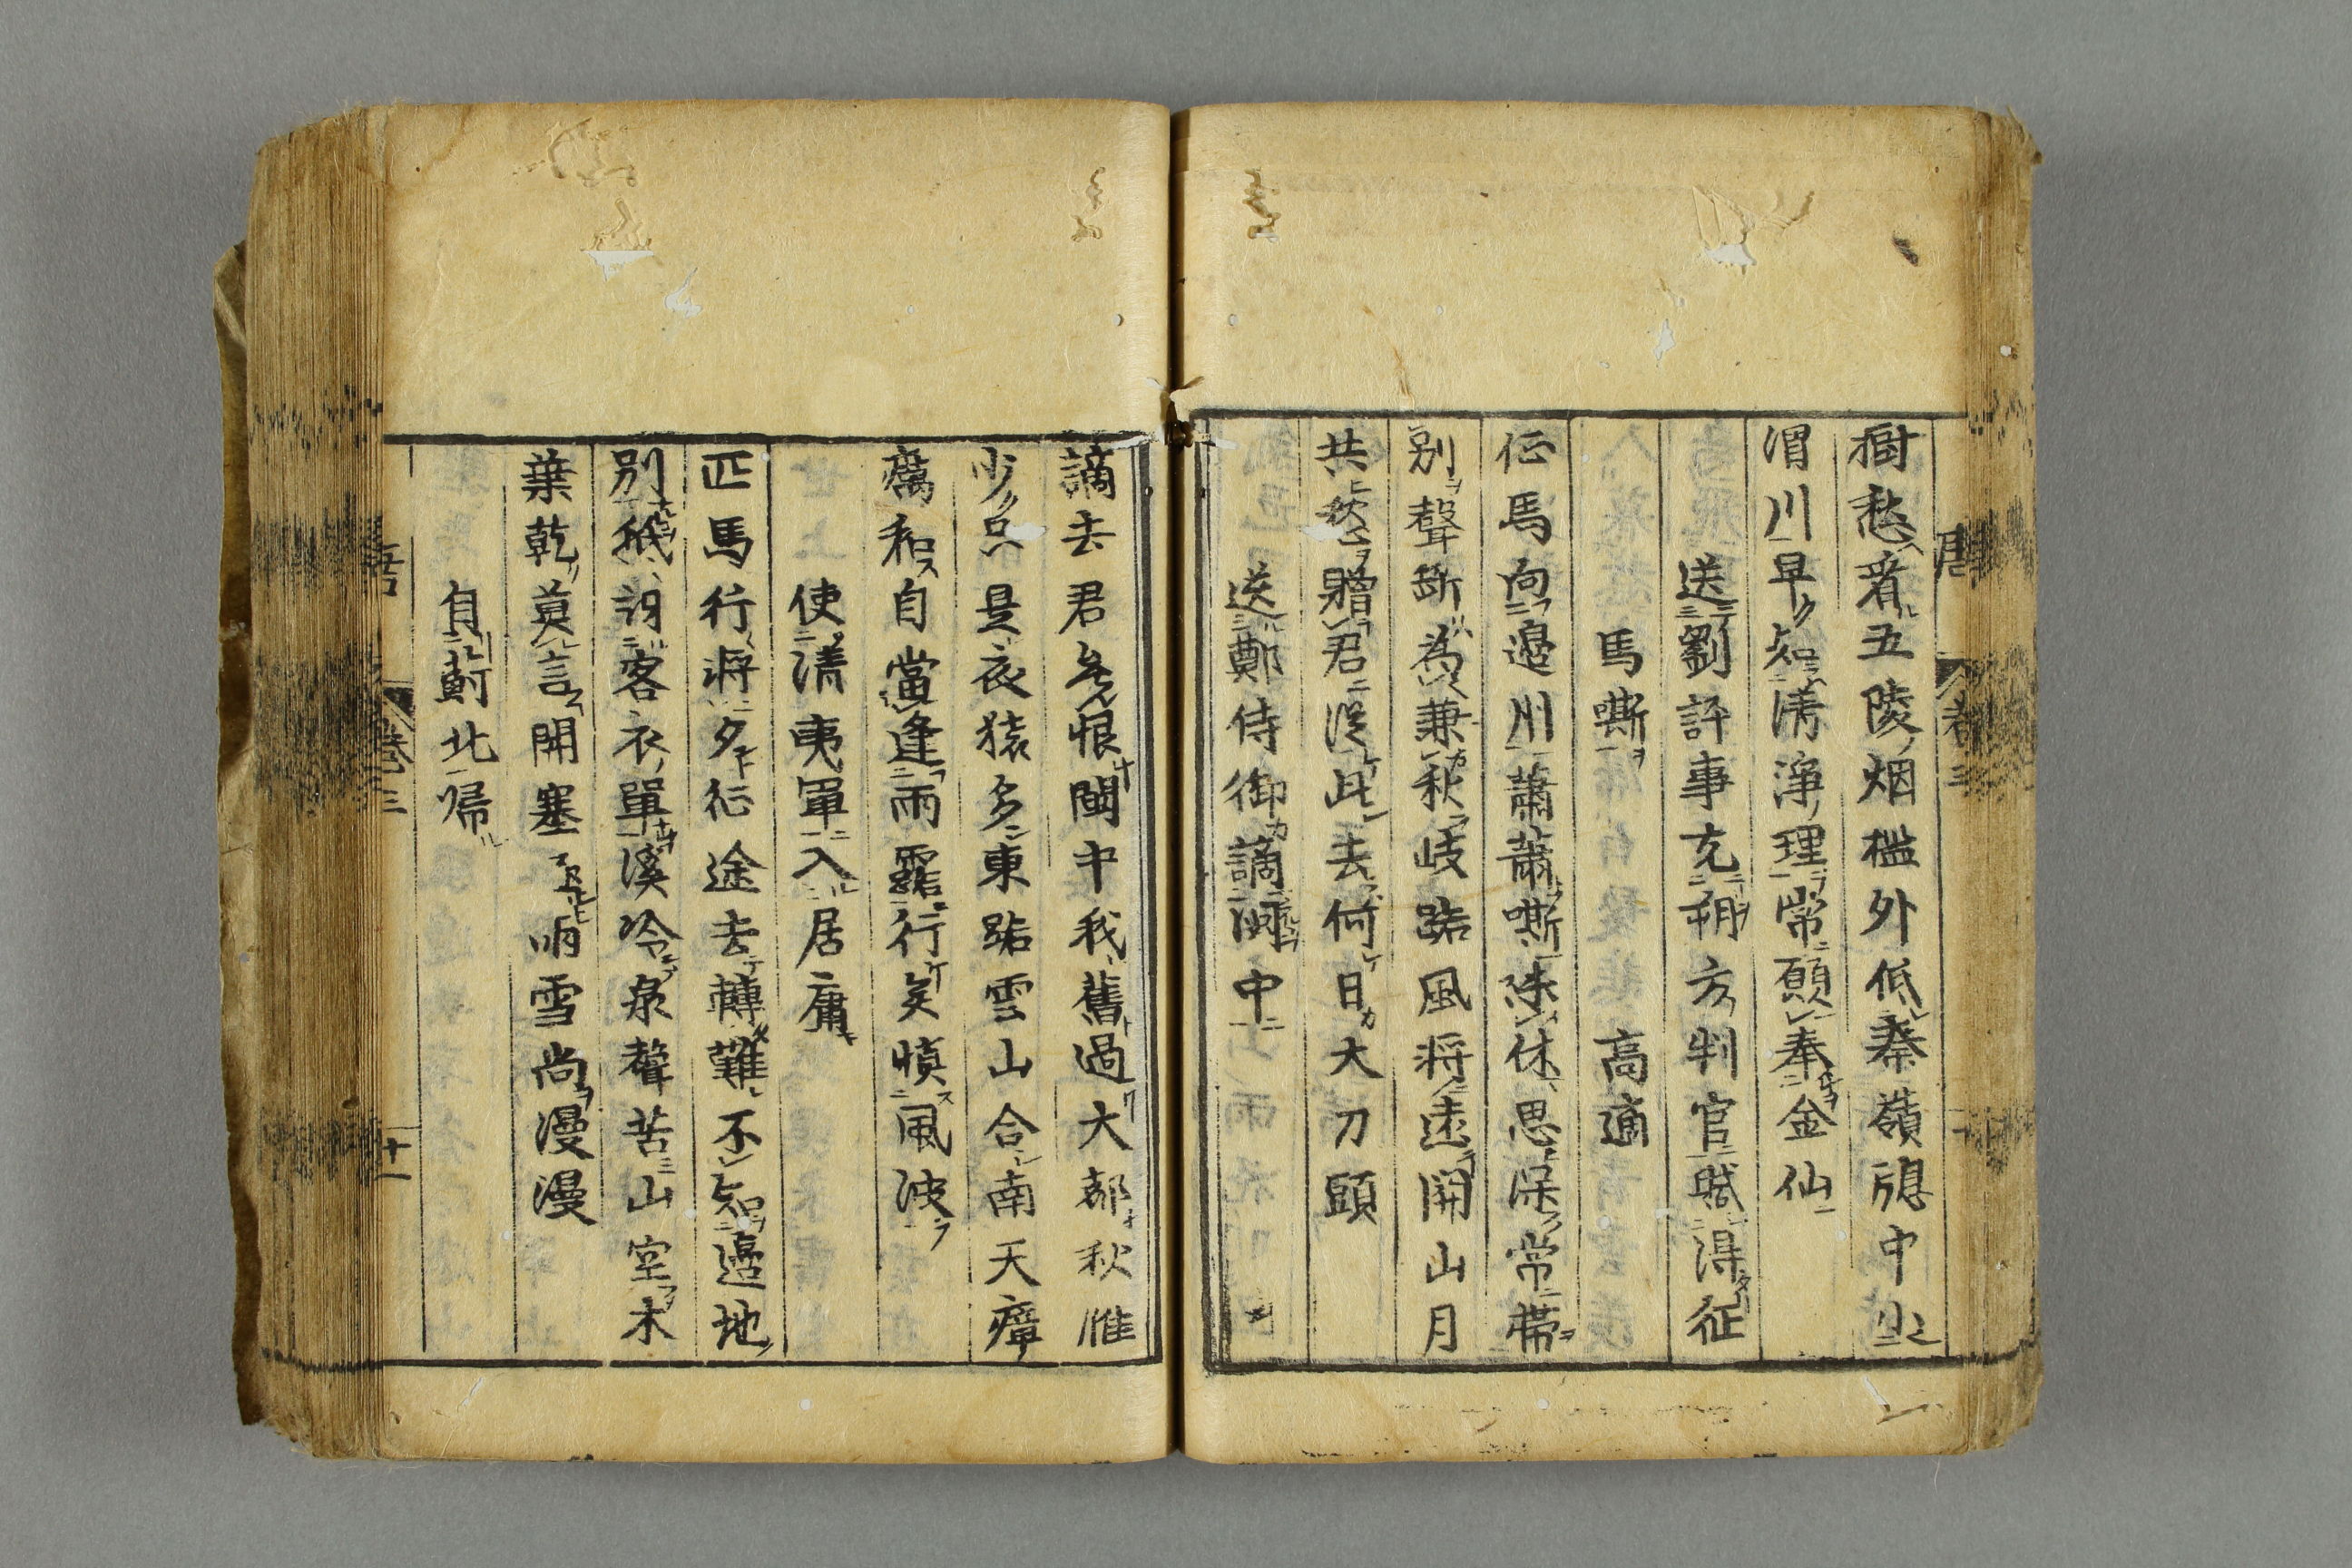 樹愁看五陵烟檻外低秦嶺牕中小
渭川早知清淨理常願奉金仙
送劉評事充朔方判官賦得征
馬嘶 高適
征馬向邊州蕭蕭嘶未休思深常帶
別聲斷為兼秋岐路風將遠關山月
共愁贈君從此去何日大刀頭
送鄭侍御謫閩中
謫去君無恨閩中我舊過大都秋雁
少只是夜猿多東路雲山合南天瘴
癘和自當逢雨露行矣慎風波
使清夷軍入居庸
匹馬行將夕征途去轉難不知邊地
別秖訝客衣單溪冷泉聲苦山空木
葉乾莫言關塞極雨雪尚漫漫
自薊北歸
卷三
十一